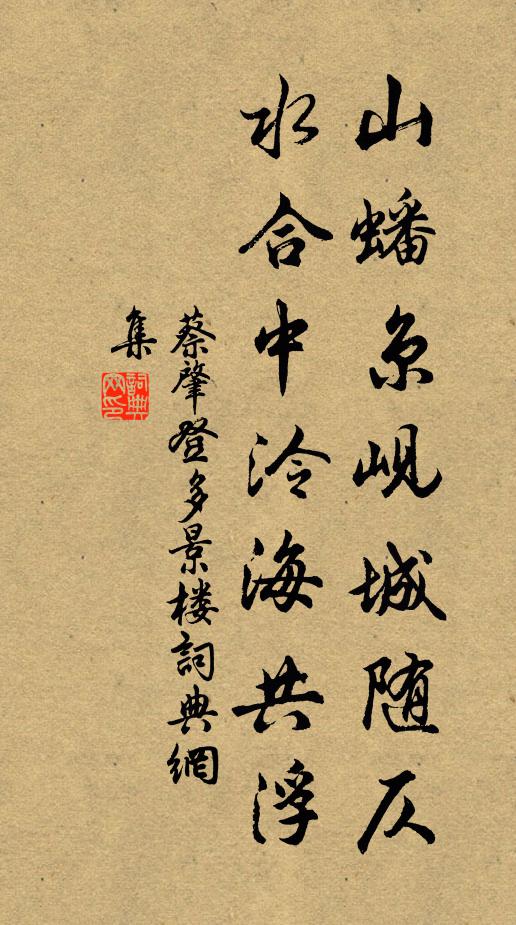 山蟠京岘城随仄
水合中泠海共浮
蔡肇登多景楼詞典網
集
詞典網印